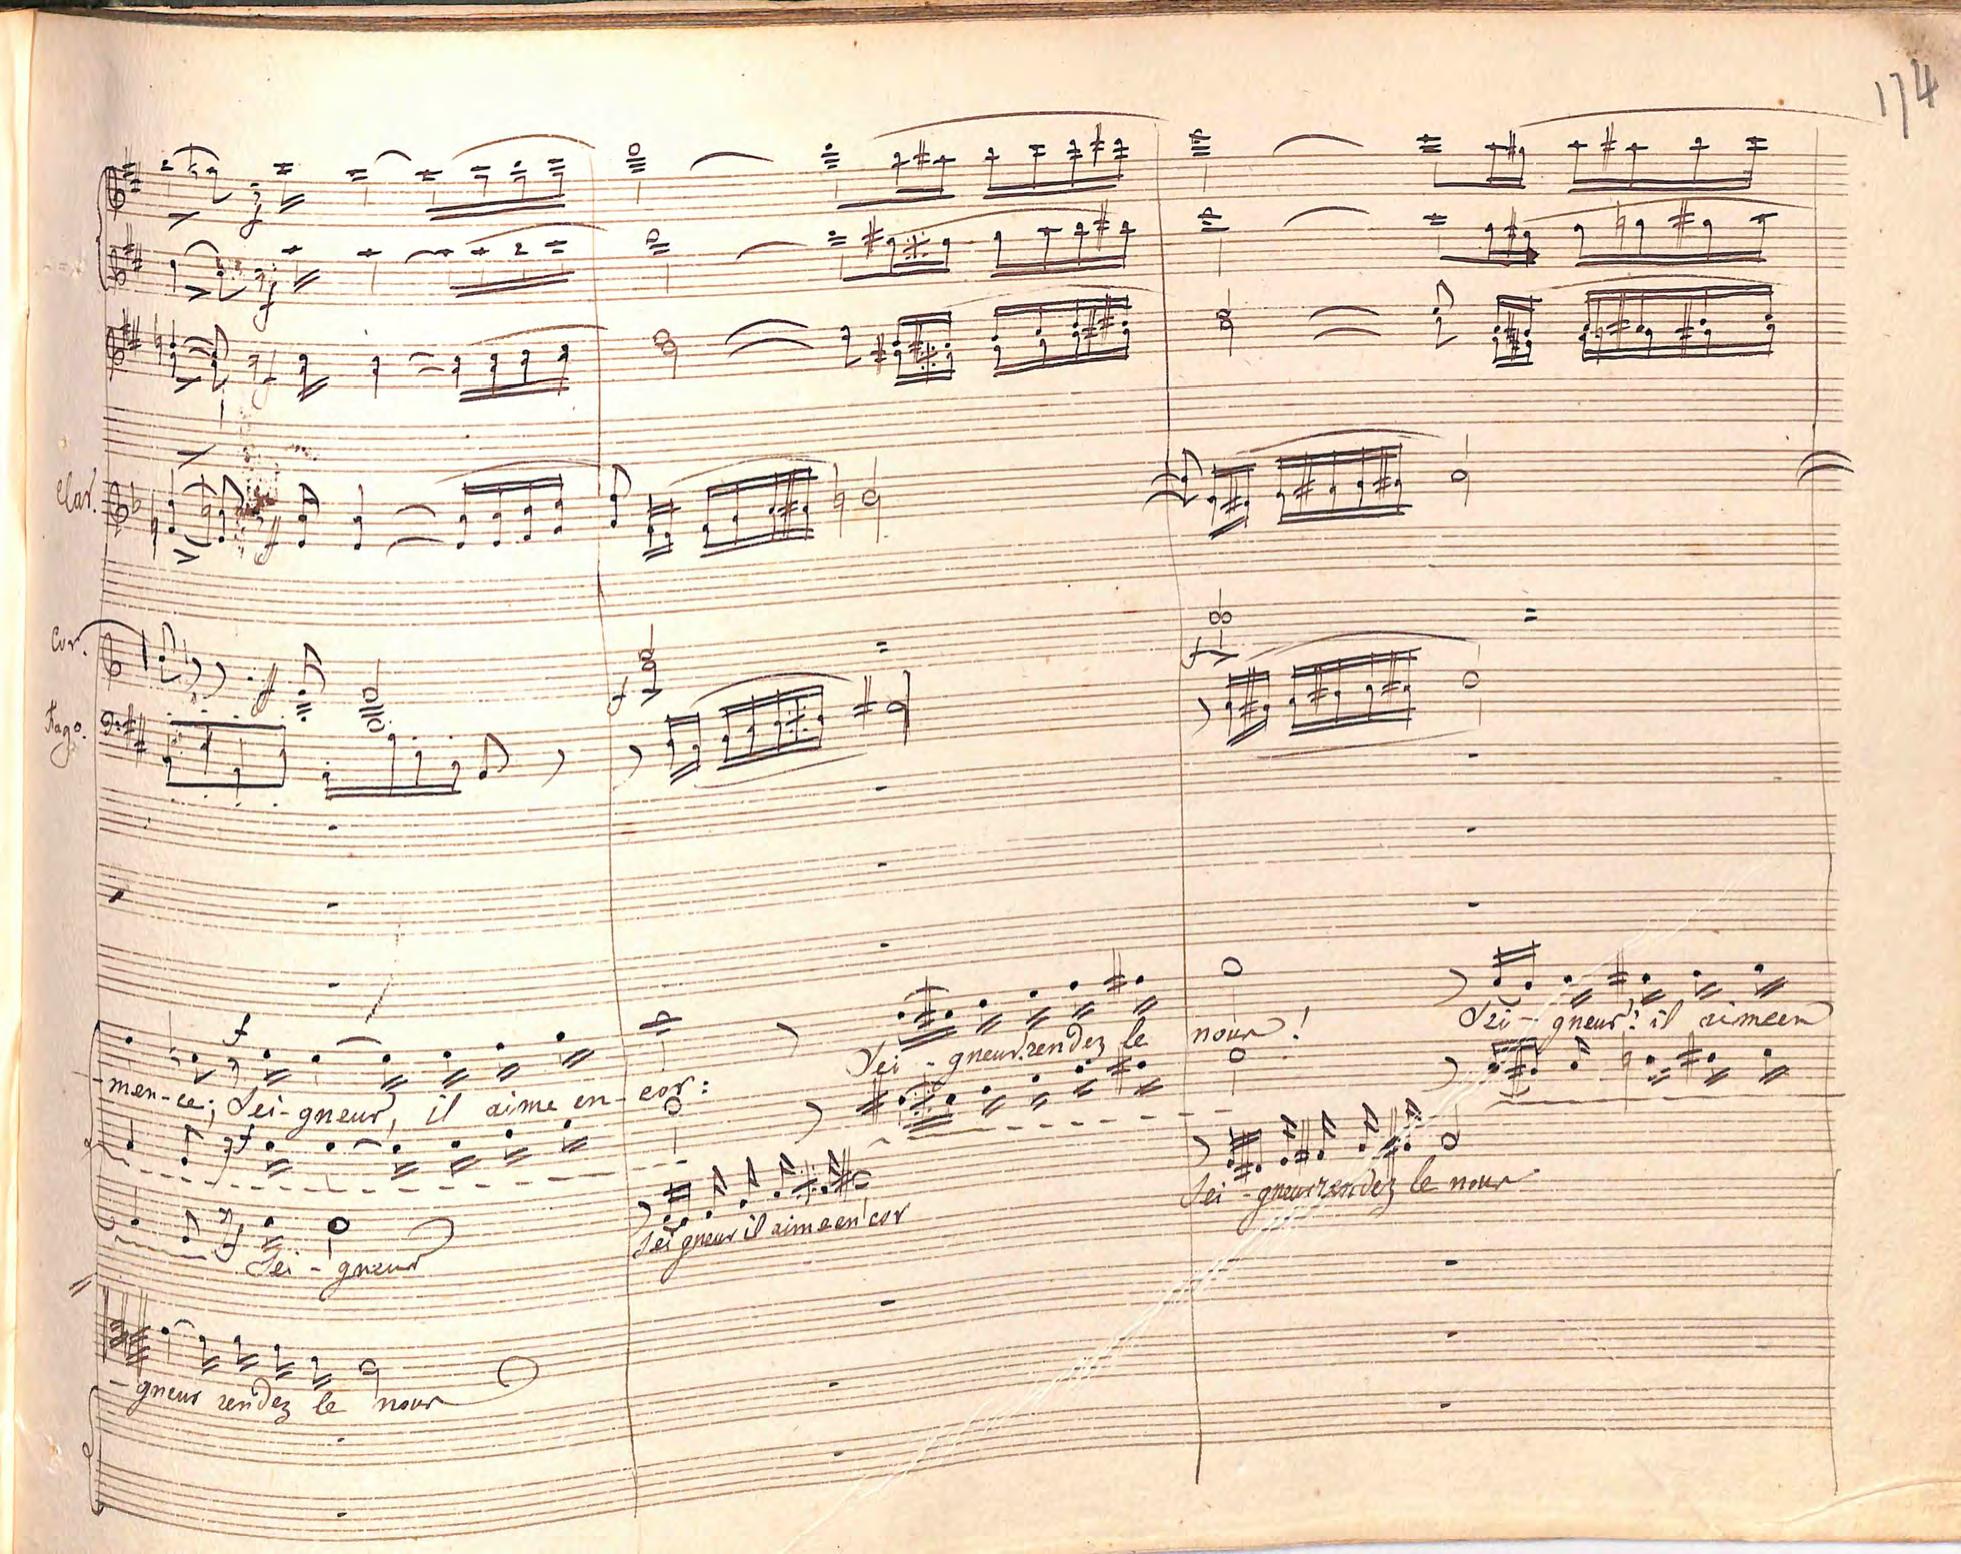 174
Clar.
Cor.
Fago.
f
f
f
f
f
f
f
f
-men-ce; Sei-gneur, il aime en-cor:
Sei-gneur rendez le nour!
Sei-gneur: il aimeen
f
Sei-gneur
Sei gneur il aimeen cor
Sei-gneur rendez le nour
-gneur rendez le nour